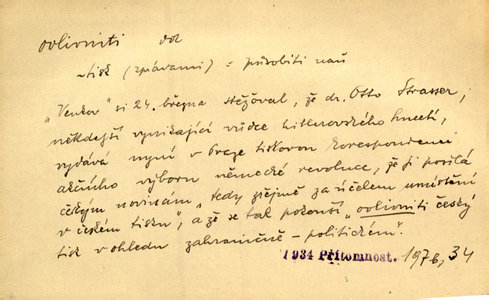 ovlivniti dok
~ tisk (zprávami) = působiti naň
„Venkov" si 24. března stěžoval, že dr. Otto Strasser,
někdejší vynikající vůdce hitlerovského hnutí,
vydává nyní v Praze tiskovou korespondenci
akčního výboru německé revoluce, že ji posílá
českým novinám „tedy zřejmě za účelem umístění
v českém tisku", a že se tak pokouší „ovlivniti český
tisk v ohledu zahraničně-politickém".
1934 Přítomnost. 197b, 34